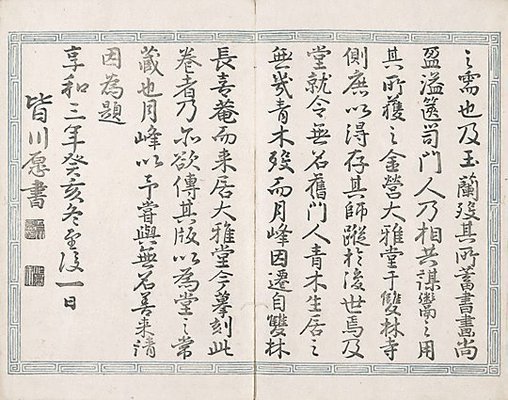 之需也及玉蘭歿其所蓄書畫尚
盈溢篋笥門人乃相共謀鬻之用
其所獲之金營大雅堂于雙林寺
側庶以得存其師蹤於後世焉及
堂就令無名舊門人青木生居之
無幾青木歿而月峰因遷自雙林
長喜菴而来居大雅堂今摹刻此
卷者乃亦欲傳其版以為堂之常
藏也月峰以予嘗與無名善来請
因為題
享和三年癸亥冬至後一日
皆川愿書